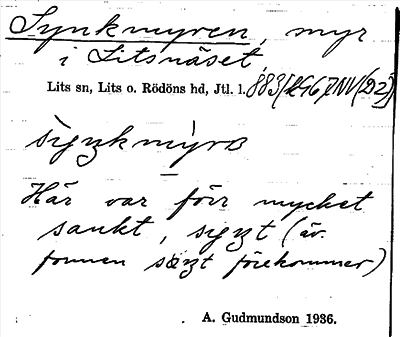 Synkmyren, myr
i Litsnäset,
Lits sn, Lits o. Rödöns hd, Jtl. l.
Här var förr mycket
sankt, (äv.
formen förekommer)
A. Gudmundson 1936.